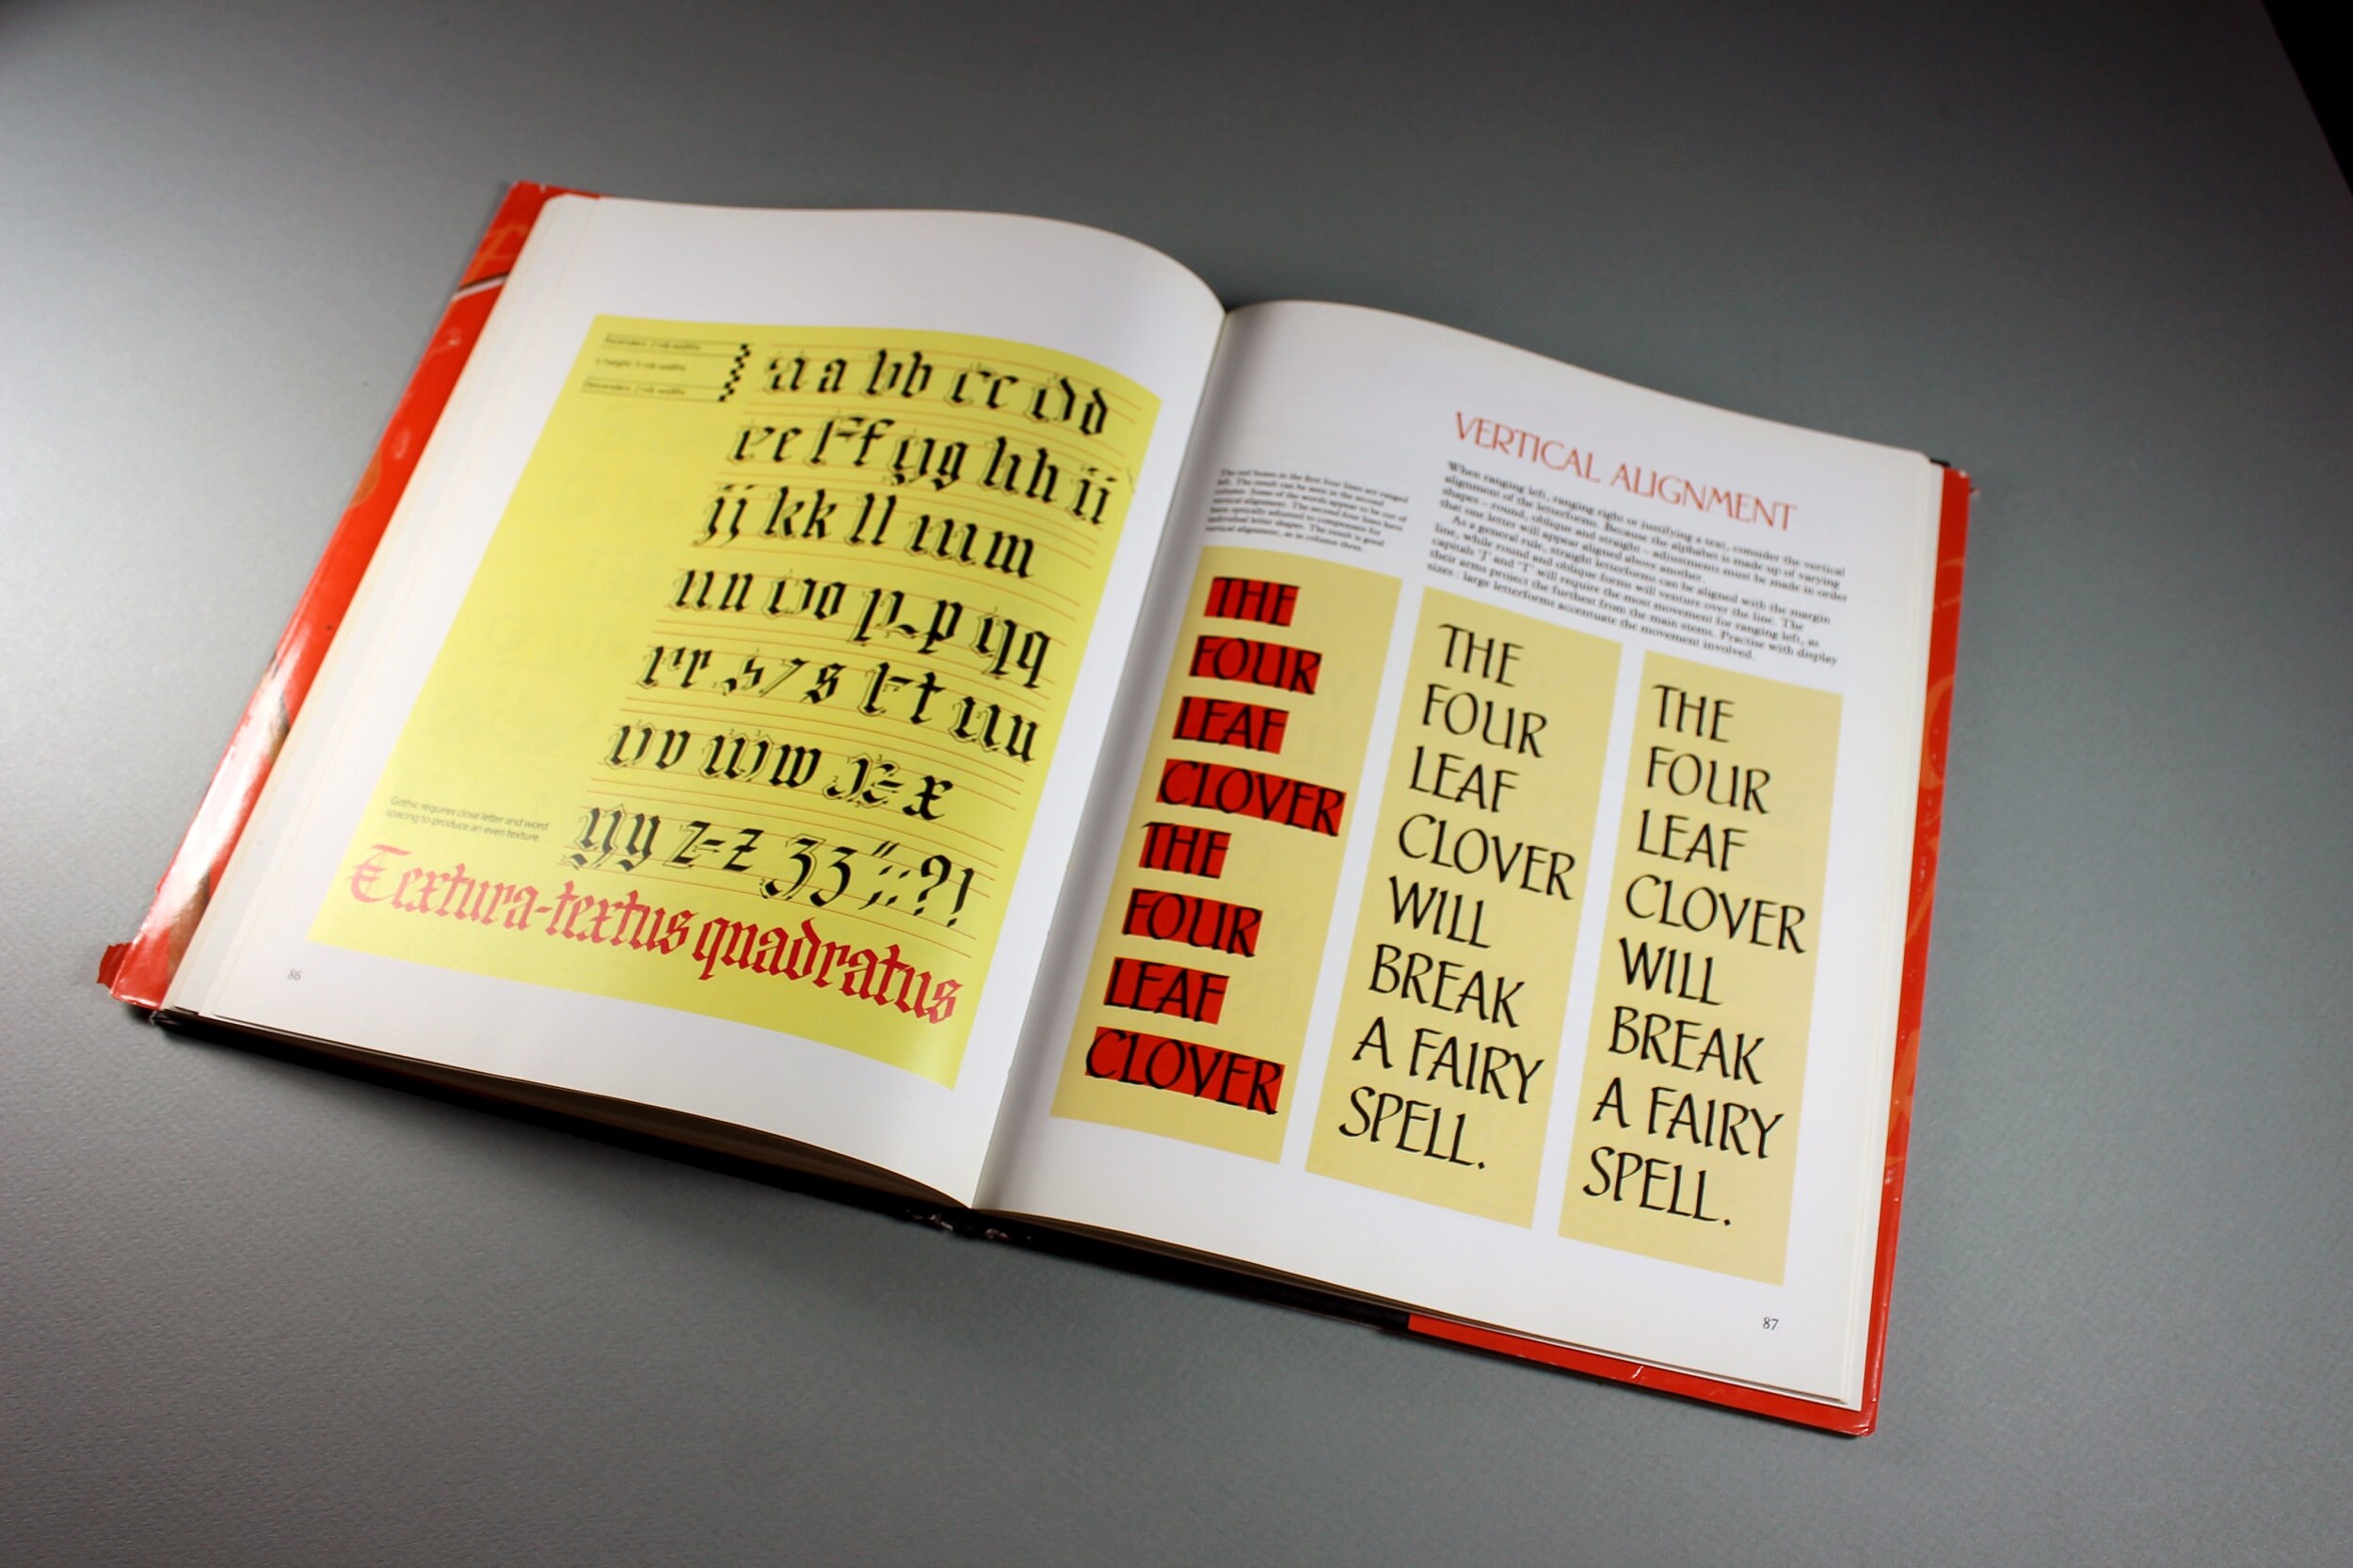 Ascenders: 2 nib widths
x height: 5 nib widths
Descenders: 2 nib widths
a a b b c c d d
e e f f g g h h i i
j j k k l l m m
n n o o p p q q
r r s s t t u u
v v w w x x
y y z z 3 3 " ; : ? !
Gothic requires close letter and word
spacing to produce an even texture.
Textura-textus quadratus
86
VERTICAL ALIGNMENT
The red boxes in the first four lines are ranged
left. The result can be seen in the second
column. Some of the words appear to be out of
vertical alignment. The second four lines have
been optically adjusted to compensate for
individual letter shapes. The result is good
vertical alignment, as in column three.
When ranging left, ranging right or justifying a text, consider the vertical
alignment of the letterforms. Because the alphabet is made up of varying
shapes – round, oblique and straight – adjustments must be made in order
that one letter will appear aligned above another.
As a general rule, straight letterforms can be aligned with the margin
line, while round and oblique forms will venture over the line. The
capitals 'J' and 'T' will require the most movement for ranging left, as
their arms project the furthest from the main stems. Practise with display
sizes: large letterforms accentuate the movement involved.
THE
FOUR
LEAF
CLOVER
THE
FOUR
LEAF
CLOVER
THE
FOUR
LEAF
CLOVER
WILL
BREAK
A FAIRY
SPELL.
THE
FOUR
LEAF
CLOVER
WILL
BREAK
A FAIRY
SPELL.
87